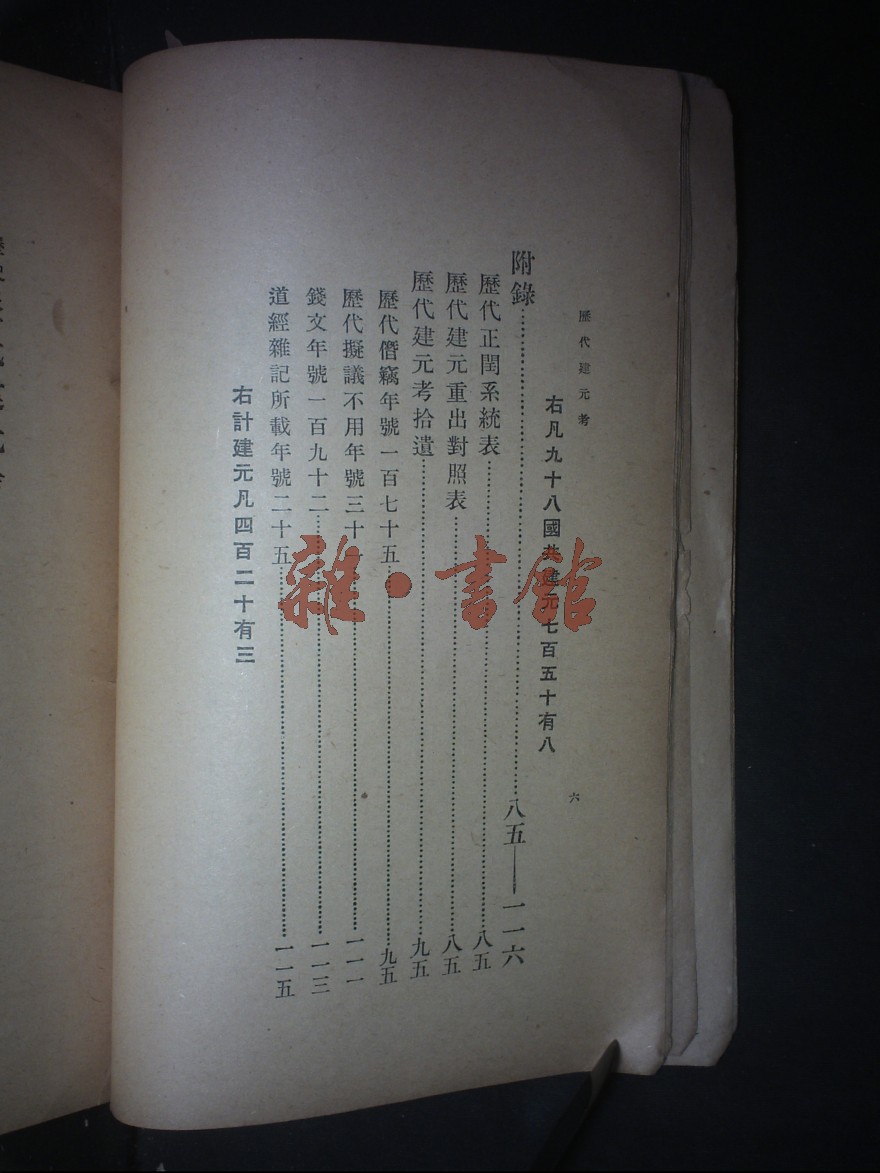 歷代建元考 六
右凡九十八國共建元七百五十有八
附錄……八五——一一六
歷代正閏系統表……八五
歷代建元重出對照表……八五
歷代建元考拾遺……九五
歷代僭竊年號一百七十五……九五
歷代擬議不用年號三十……一一一
錢文年號一百九十二……一一三
道經雜記所載年號二十五……一一五
右計建元凡四百二十有三
雜·書館